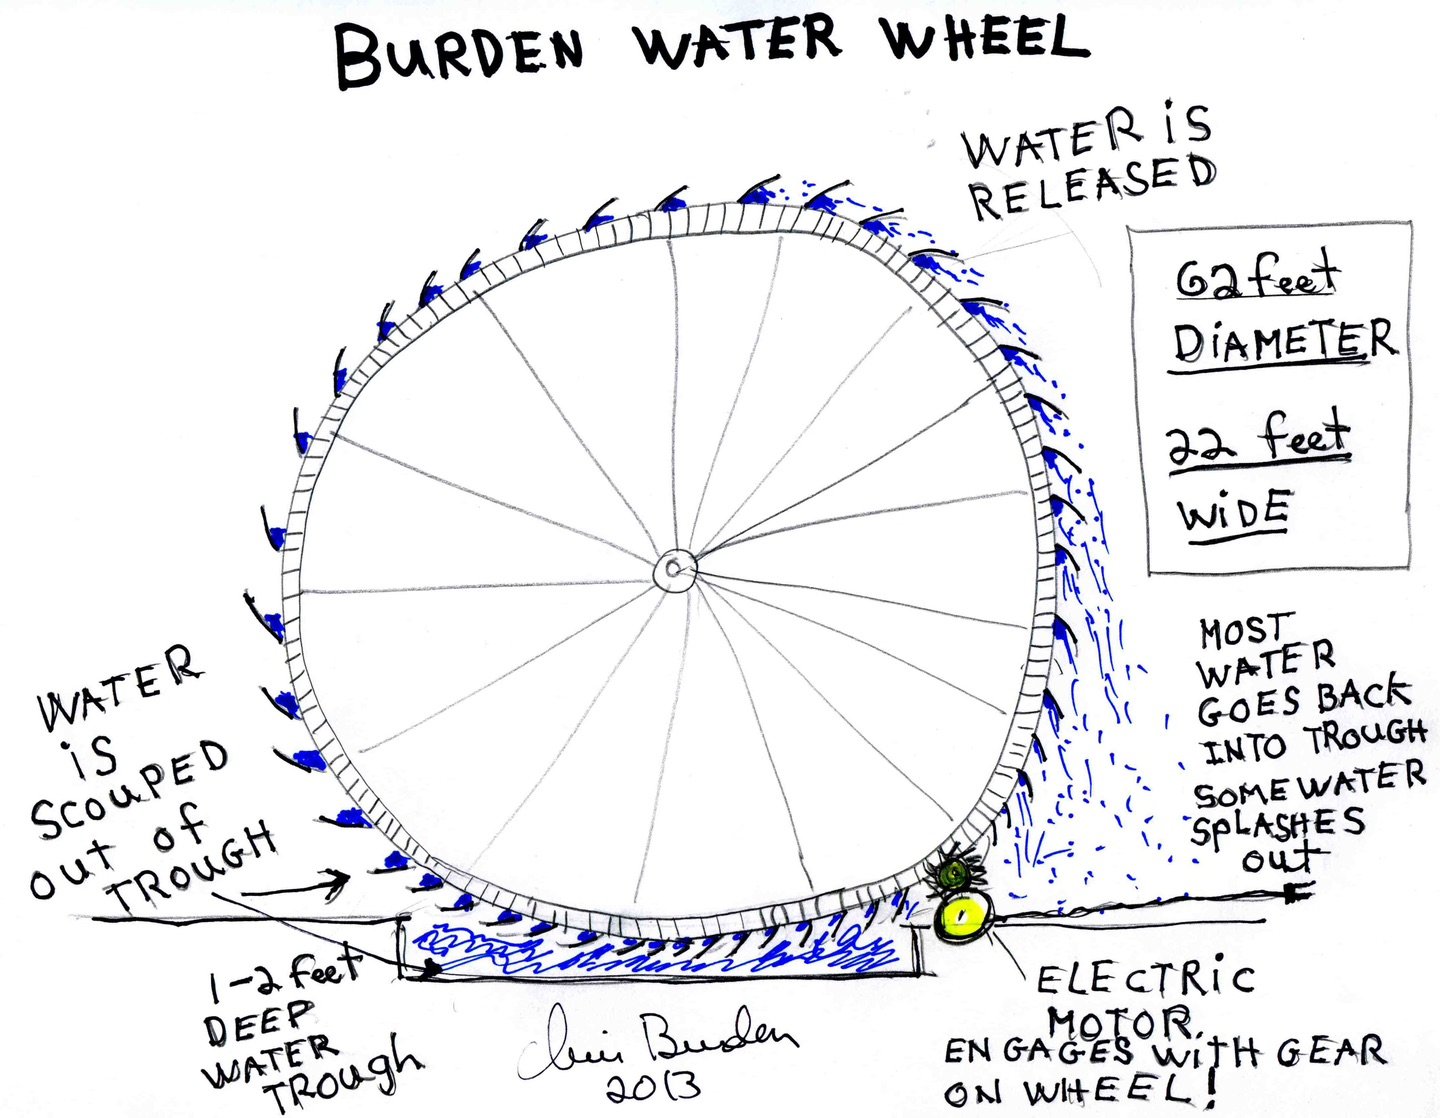 BURDEN WATER WHEEL
WATER iS
RELEASED
62 feet
DiAMETER
22 feet
WiDE
WATER
iS
SCOUPED
out of
TROUGH
MOST
WATER
GOES BACK
INTO TROUGH
SOME WATER
SPLASHES
out
1-2 feet
DEEP
WATER
TROUGH
Chris Burden
2013
ELECTRiC
MOTOR.
ENGAGES WiTH GEAR
ON WHEEL!